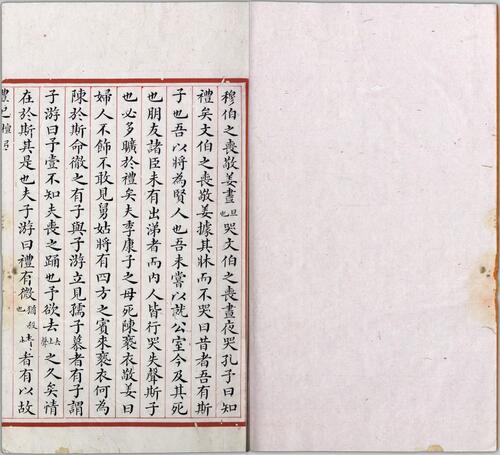 穆伯之喪敬姜晝旦也哭文伯之喪晝夜哭孔子曰知
禮矣文伯之喪敬姜據其牀而不哭曰昔者吾有斯
子也吾以將為賢人也吾未嘗以就公室今及其死
也朋友諸臣未有出涕者而內人皆行哭失聲斯子
也必多曠於禮矣夫季康子之母死陳褻衣敬姜曰
婦人不飾不敢見舅姑將有四方之賓來褻衣何為
陳於斯命徹之有子與子游立見孺子慕者有子謂
子游曰予壹不知夫喪之踊也予欲去去上聲之久矣情
在於斯其是也夫子游曰禮有微猶殺也情者有以故
禮記檀弓